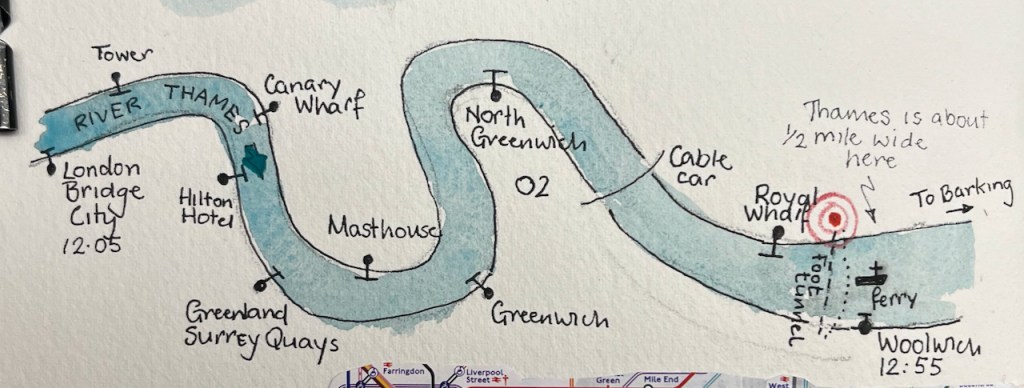 Tower
RIVER THAMES
Canary
Wharf
London
Bridge
City
12.05
Hilton
Hotel
Masthouse
Greenland
Surrey Quays
Greenwich
North
Greenwich
O2
Cable
car
Thames is about
1/2 mile wide
here
Royal
Wharf
To Barking
foot
tunnel
ferry
Woolwich
12:55
Farringdon
Liverpool
Street
Green
Mile End
West